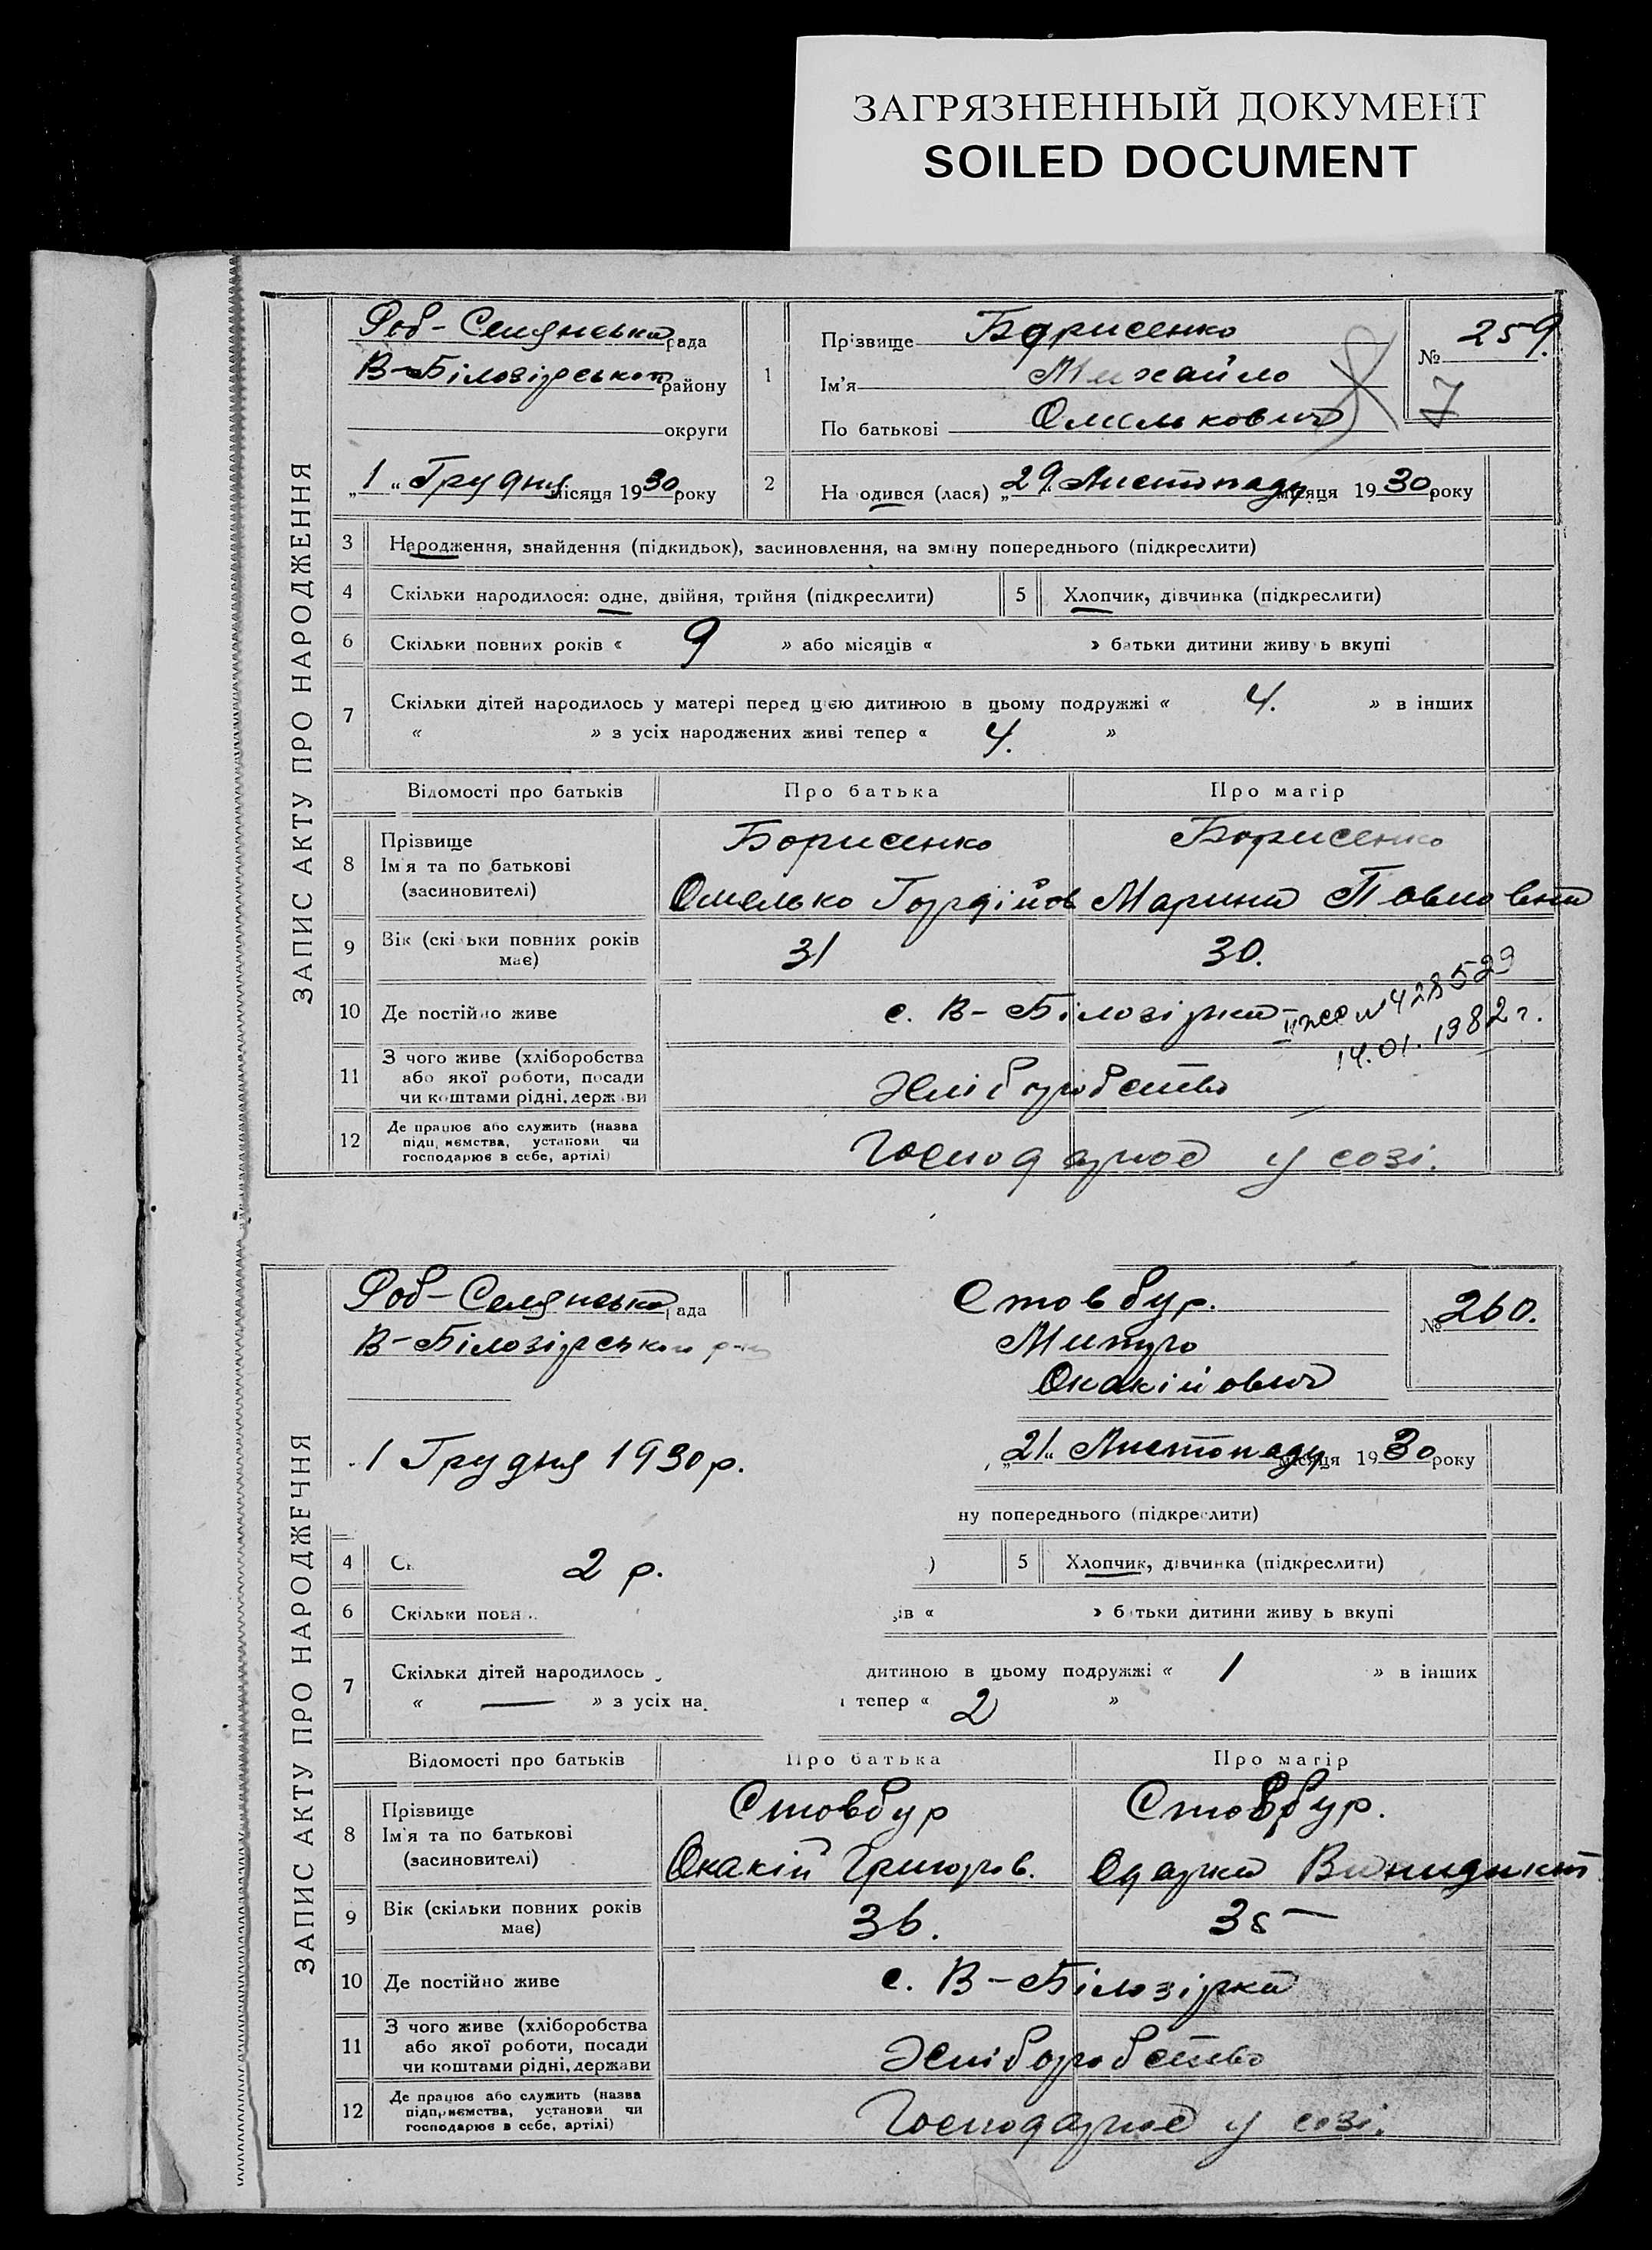 ЗАГРЯЗНЕННЫЙ ДОКУМЕНТ
SOILED DOCUMENT
ЗАПИС АКТУ ПРО НАРОДЖЕННЯ
Роб-Селянська рада
В-Білозірського району
округи
„1“ Грудня місяця 1930 року
1
Прізвище Борисенко
Ім'я Михайло
По батькові Омелькович
№ 259.
7
2
На одився (лася) „29“ Листопаду місяця 1930 року
3 Народження, знайдення (підкидьок), засиновлення, на зміну попереднього (підкреслити)
4 Скільки народилося: одне, двійня, трійня (підкреслити)
5 Хлопчик, дівчинка (підкреслити)
6 Скільки повних років « 9 » або місяців « » батьки дитини живу ь вкупі
7 Скільки дітей народилось у матері перед цією дитиною в цьому подружжі « 4. » в інших
« » з усіх народжених живі тепер « 4. »
Відомості про батьків Про батька Про матір
8 Прізвище
Ім'я та по батькові
(засиновителі)
Борисенко Борисенко
Омелько Гордійов Марина Павловна
9 Вік (скільки повних років
має)
31 30.
10 Де постійно живе с. В-Білозірка
428529
14.01.1982 г.
11 З чого живе (хліборобства
або якої роботи, посади
чи коштами рідні, держави
Хліборобство
12 Де працює або служить (назва
підприємства, установи чи
господарює в себе, артілі)
Господарює у созі.
ЗАПИС АКТУ ПРО НАРОДЖЕЧНЯ
Роб-Селянська рада
В-Білозірського р-ну
1 Грудня 1930 р.
Стовбур.
Митро
Окакійович
№ 260.
„21“ Листопаду місяця 1930 року
ну попереднього (підкреслити)
4 Ск 2 р. )
5 Хлопчик, дівчинка (підкреслити)
6 Скільки повн ів « » батьки дитини живу ь вкупі
7 Скільки дітей народилось дитиною в цьому подружжі « 1 » в інших
« — » з усіх на тепер « 2 »
Відомості про батьків Про батька Про матір
8 Прізвище
Ім'я та по батькові
(засиновителі)
Стовбур Стовбур.
Окакій Григоров. Одарка
9 Вік (скільки повних років
має)
36. 35
10 Де постійно живе с. В-Білозірка
11 З чого живе (хліборобства
або якої роботи, посади
чи коштами рідні, держави
Хліборобство
12 Де працює або служить (назва
підприємства, установи чи
господарює в себе, артілі)
Господарює у созі.